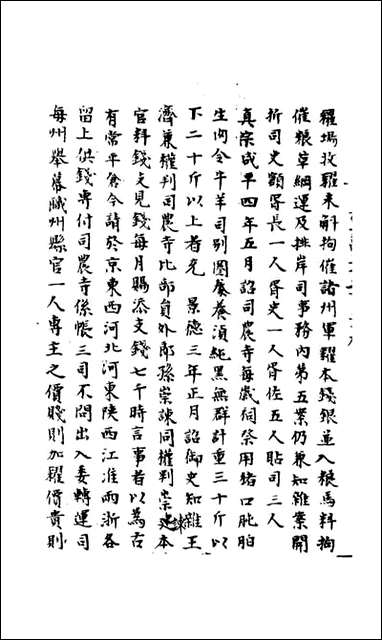 糴場收糴未斛拘催諸州軍糴本錢銀並入糧馬料拘
催糧草綱運及排岸司事務内第五業仍兼知雜業開
折司吏額胥長一人胥史一人胥佐五人貼司三人
真宗咸平四年五月詔司農寺每歲祠祭用猪口䏲胉
生向令牛羊司别圈養養湏純黑無群計重三十斤以
下二十斤以上者充 景德三年正月詔御史知雜王
濟兼權判司農寺比部員外郎孫崇諫同權判崇諫本
官料錢支見錢每月賜添支錢七千時言事者以為古
有常平倉今請於京東西河北河東陕西江淮兩浙各
留上供錢専付司農寺係帳三司不問出入委轉運司
每州舉幕职州縣官一人専主之價賤則加糴價貴則